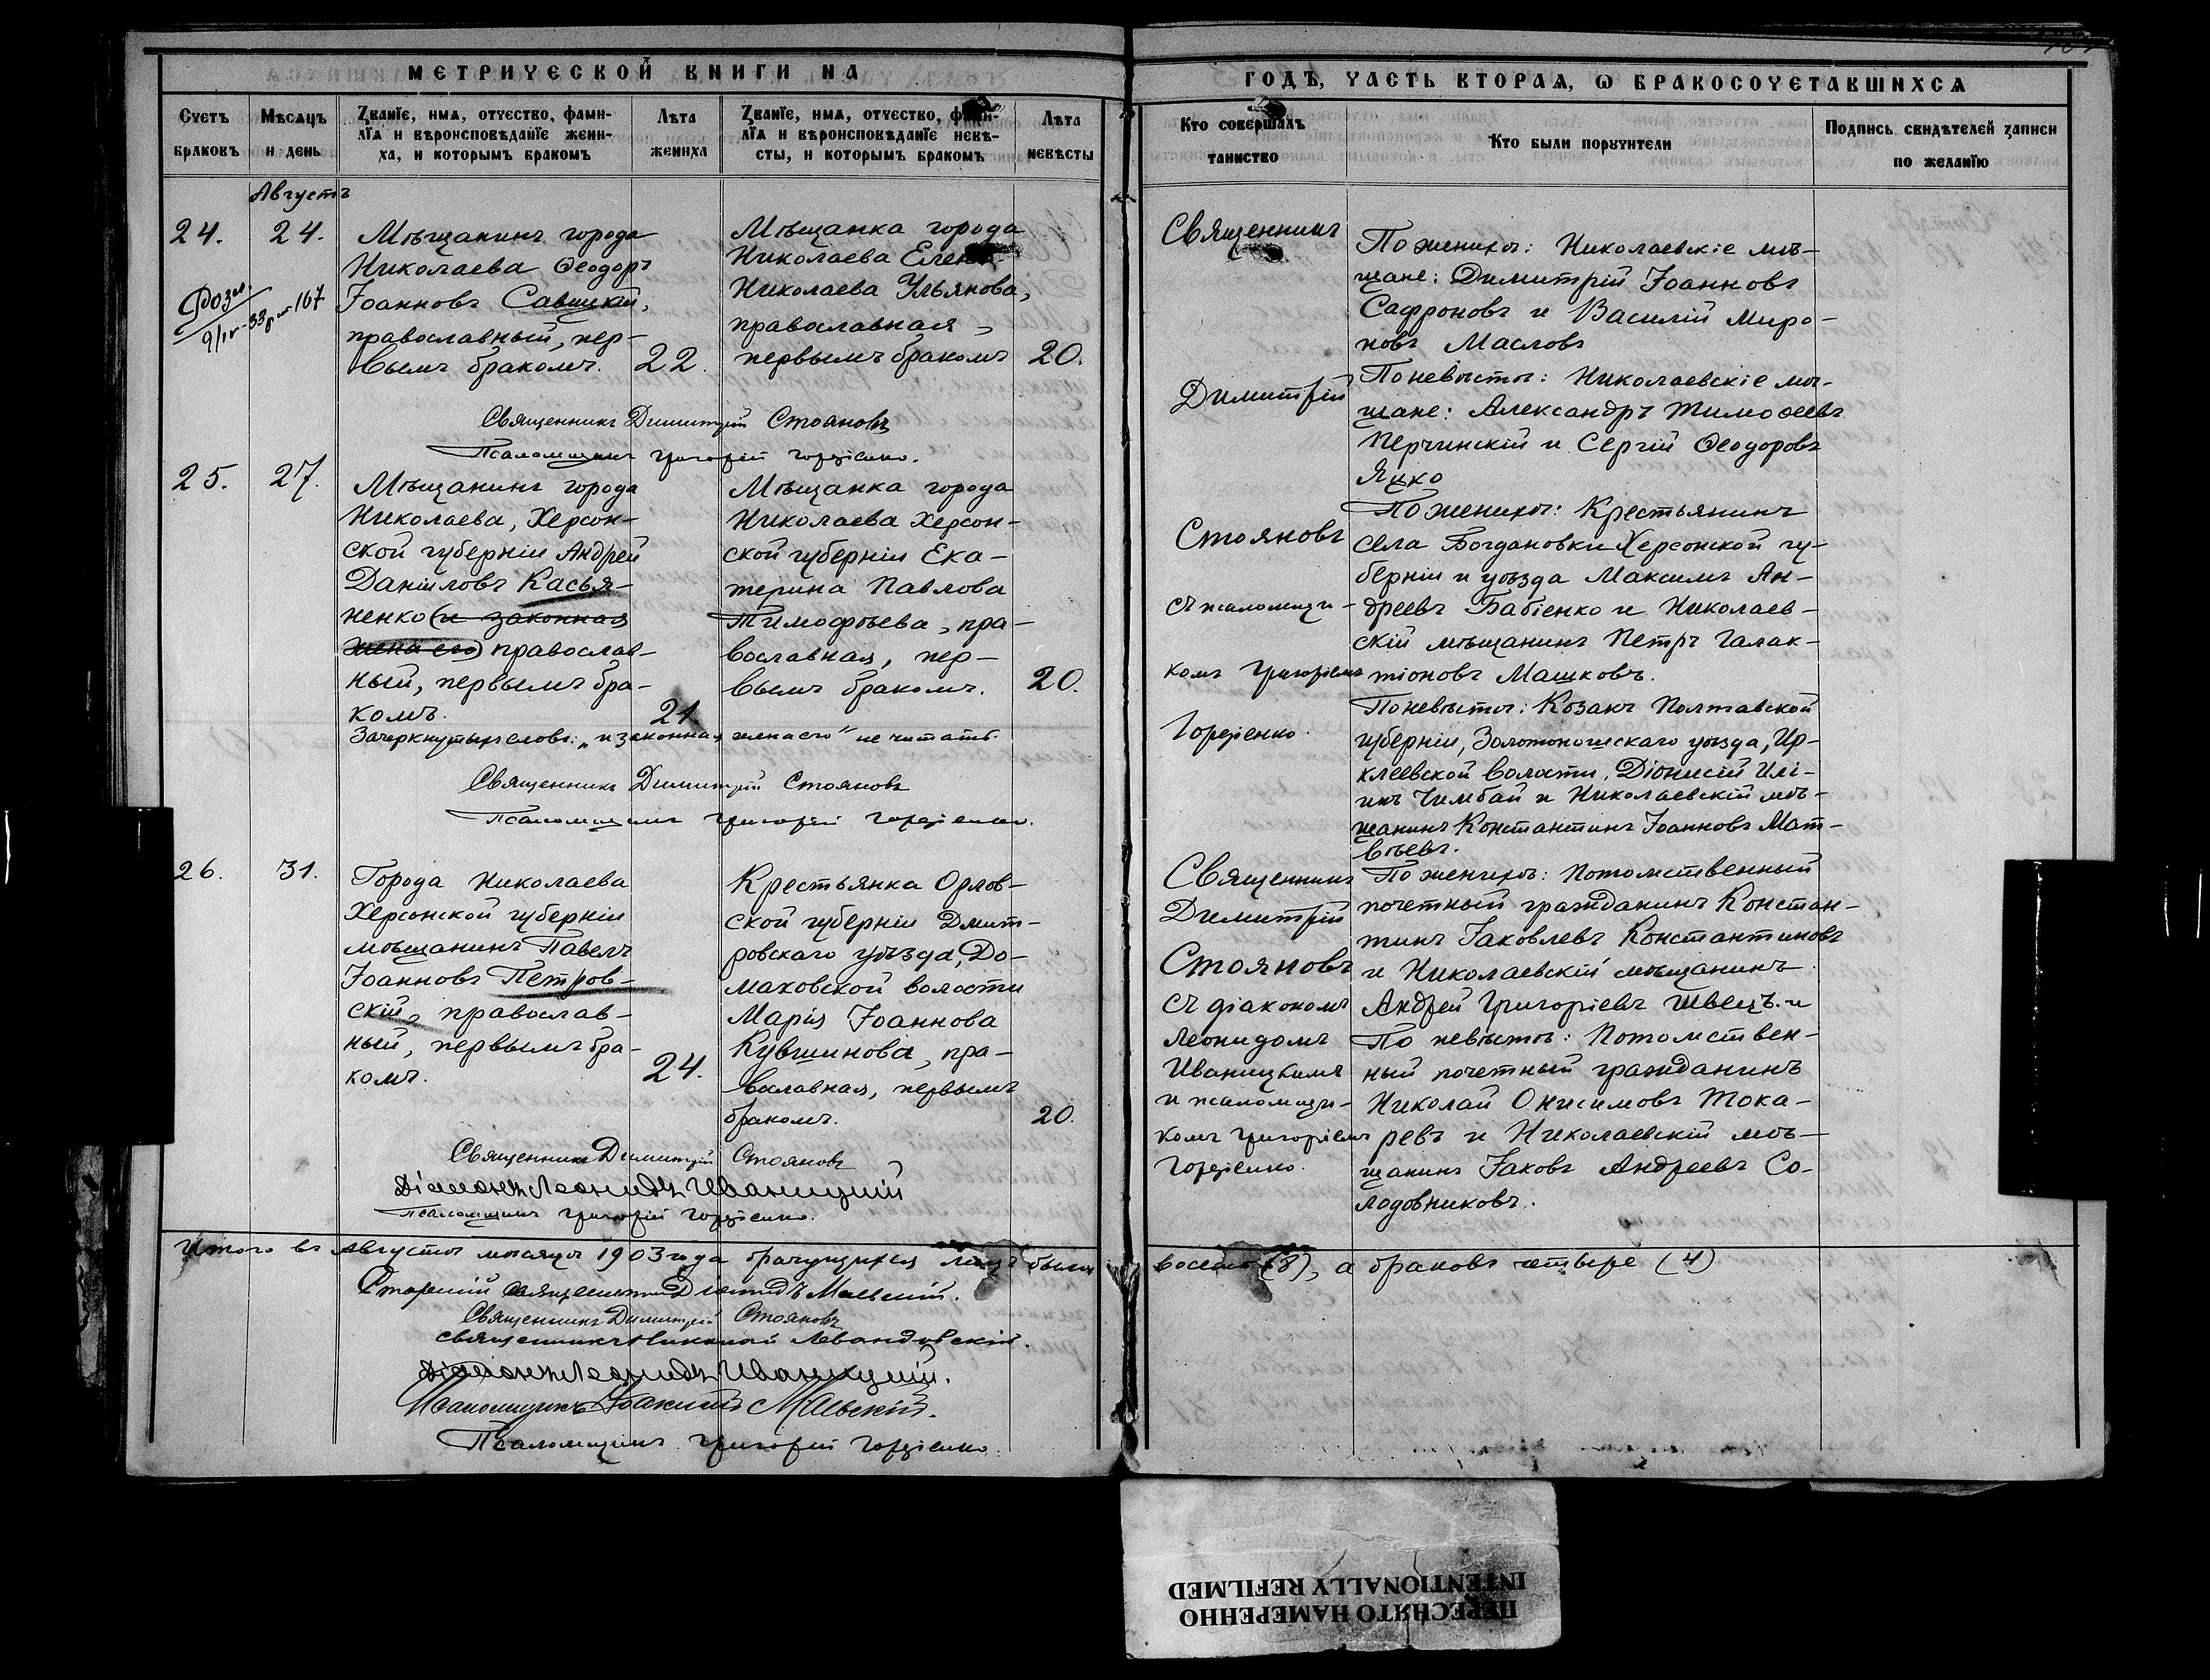 МЕТРИЧЕСКОЙ КНИГИ НА
ГОДЪ, ЧАСТЬ ВТОРАѦ, Ѡ БРАКОСОЧЕТАВШИХСѦ
Счетъ браковъ
Мѣсѧцъ и день
Званїе, имѧ, отчество, фами-
лїѧ и вѣроисповѣданїе жени-
ха, и которымъ бракомъ
Лѣта жениха
Званїе, имѧ, отчество, фами-
лїѧ и вѣроисповѣданїе невѣ-
сты, и которымъ бракомъ
Лѣта невѣсты
Кто совершалъ таинство
Кто были поручители
Подпись свидѣтелей записи
по желанїю
Августъ
24.
24.
Мѣщанинъ города
Николаева Ѳеодоръ
Іоанновъ Савицкій,
православный, пер-
вымъ бракомъ.
22.
Мѣщанка города
Николаева Елена
Николаева Ульянова,
православная,
первымъ бракомъ
20.
Священникъ
Димитрій
Стояновъ
съ псаломщи-
комъ Григоріемъ
Гордіенко.
По женихѣ: Николаевскіе мѣ-
щане: Димитрій Іоанновъ
Сафроновъ и Василій Миро-
новъ Масловъ
По невѣстѣ: Николаевскіе мѣ-
щане: Александръ Тимоѳеевъ
Перчинскій и Сергій Ѳеодоровъ
Яцко
Священникъ Димитрій Стояновъ
Псаломщикъ Григорій Гордіенко.
25.
27.
Мѣщанинъ города
Николаева, Херсон-
ской губерніи Андрей
Даніиловъ Касья-
ненко (и законная
жена его) православ-
ный, первымъ бра-
комъ.
21
Мѣщанка города
Николаева Херсон-
ской губерніи Ека-
терина Павлова
Тимофѣева, пра-
вославная, пер-
вымъ бракомъ.
20.
Зачеркнутыхъ словъ: „и законная жена его" не читать.
По женихѣ: Крестьянинъ
села Богдановки Херсонской гу-
берніи и уѣзда Максимъ Ан-
дреевъ Бабіенко и Николаев-
скій мѣщанинъ Петръ Галак-
тіоновъ Машковъ.
По невѣстѣ: Козакъ Полтавской
губерніи, Золотоношскаго уѣзда, Ир-
клеевской волости, Діонисій Илі-
инъ Чимбай и Николаевскій мѣ-
щанинъ Константинъ Іоанновъ Мат-
вѣевъ.
Священникъ Димитрій Стояновъ
Псаломщикъ Григорій Гордіенко.
26.
31.
Города Николаева
Херсонской губерніи
мѣщанинъ Павелъ
Іоанновъ Петров-
скій, православ-
ный, первымъ бра-
комъ.
24.
Крестьянка Орлов-
ской губерніи Дмит-
ровскаго уѣзда, До-
маховской волости
Марія Іоаннова
Кувшинова, пра-
вославная, первымъ
бракомъ.
20.
Священникъ
Димитрій
Стояновъ
съ діакономъ
Леонидомъ
Иваницкимъ
и псаломщи-
комъ Григоріемъ
Гордіенко.
По женихѣ: Потомственный
почетный гражданинъ Констан-
тинъ Іаковлевъ Константиновъ
и Николаевскій мѣщанинъ
Андрей Григоріевъ Швецъ и
По невѣстѣ: Потомствен-
ный почетный гражданинъ
Николай Онисимовъ Тока-
ревъ и Николаевскій мѣ-
щанинъ Іаковъ Андреевъ Со-
лодовниковъ.
Священникъ Димитрій Стояновъ
Діаконъ Леонидъ Иваницкій
Псаломщикъ Григорій Гордіенко.
Итого въ Августѣ мѣсяцѣ 1903 года брачущихся лицъ было восемь (8), а браковъ четыре (4)
Старшій священникъ
Священникъ Димитрій Стояновъ
Священникъ Николай Левандовскій.
Діаконъ Леонидъ Иваницкій.
Псаломщикъ Іоакимъ
Псаломщикъ Григорій Гордіенко.
ПЕРЕСНЯТО НАМЕРЕННО
INTENTIONALLY REFILMED